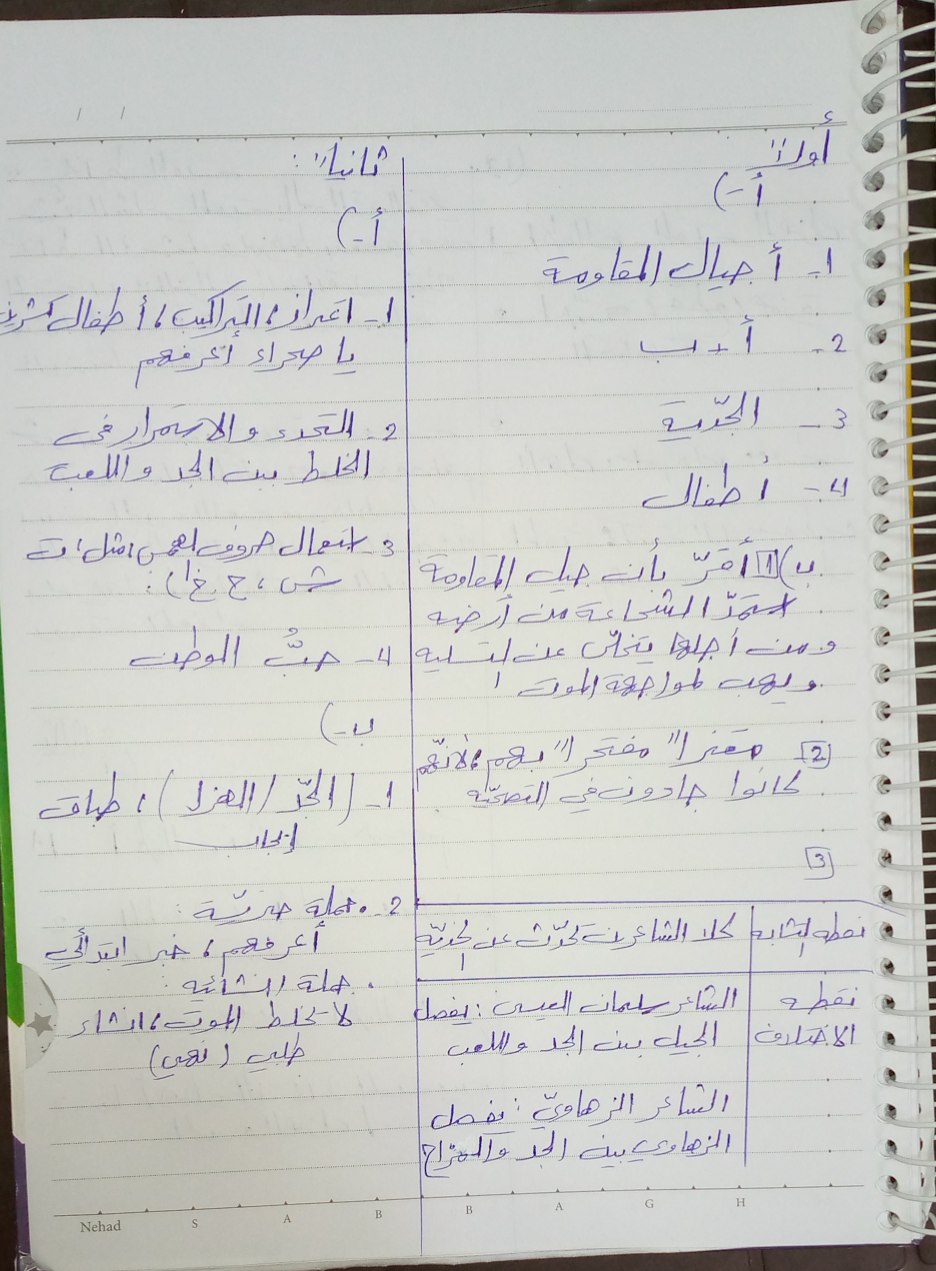 أولاً:
أ-)
1- أجيال المقاومة
2- أ + ب
3- الجدّية
4- أطفال
ب) 1 أقرّ بأن جيل المقاومة
استمدّ الشجاعة من أرضه
ومن أجلها يتخلّى عن لتسليه
ويهب لمواجهة الموت
2 معتزاً مفتخراً بهم، لأنّهم
كانوا جادون في التضحيّة
3
نقطة التشابه
كلا الشاعرين تحدّث عن الجديّة
نقطة
الاختلاف
الشاعر سليمان العيسى: يفصل
الجيل بين الجد واللعب
الشاعر الزهاويّ: يفصل
الزهاوي بين الجد والمزاح
ثانياً:
أ-)
1- اعتزاز، التراكيب، أطفال
يا صحراء أعرفهم
2- التحدي والاستمرار في
الخلط بين الجد واللعب
3- استعمال حروف الهمس، مثل، ت
ش، ح، خ):
4- حبُّ الوطن
ب-)
1- (الجدّ / الهزل)، طباق
إيجاب
2- . جملة خبريّة:
أعرفهم، خبر ابتدائي
. جملة انشائيه:
لا تخلط الموت، انشاء
طلبي (نهي)
Nehad S A B B A G H